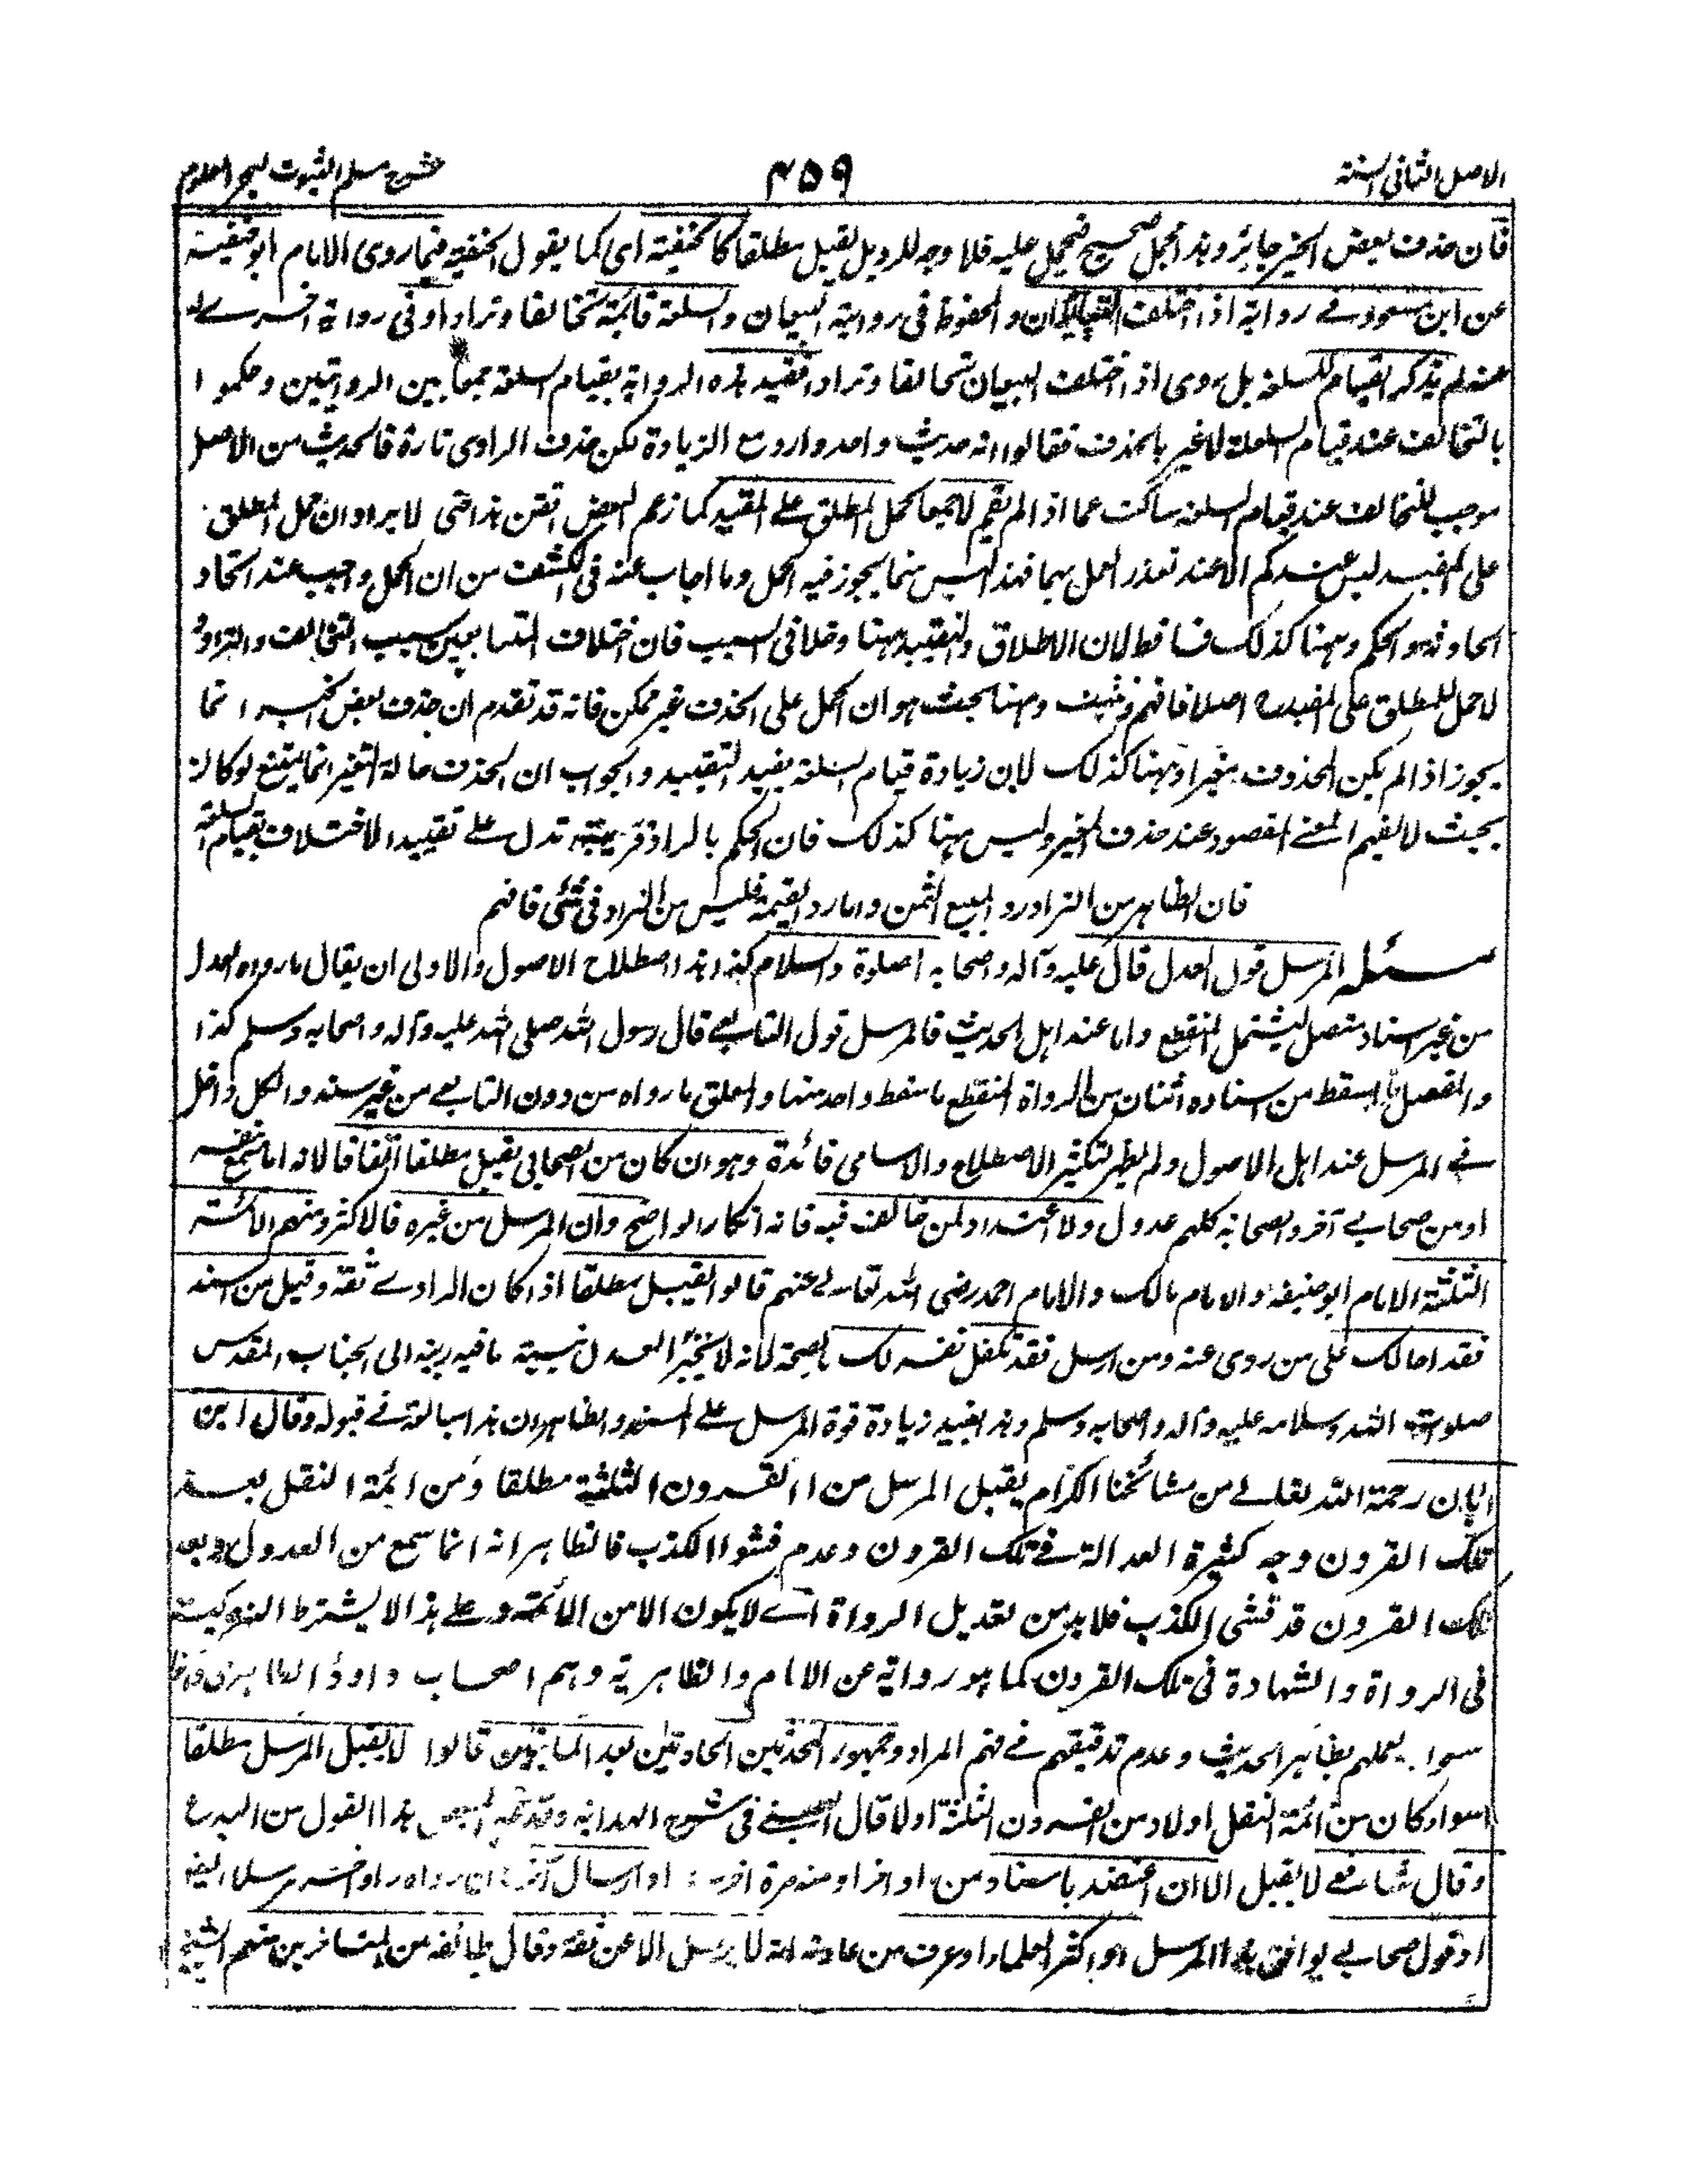 الاصل الثانى السنة ۴۵۹ شرح مسلم الثبوت لبحر العلوم
فان حذف بعض الخبر جائز وهذا محمل صحيح فيحمل عليه فلا وجه للرد بل يقبل مطلقا كالحنفية اى كما يقول الحنفية فيما روى الامام ابو حنيفة
عن ابن مسعود فى رواية اذا اختلف المتبايعان والمحفوظ فى رواية البيعان والسلعة قائمة تحالفا وترادا وفى رواية اخرى له
عنه لم يذكر القيام للسلعة بل روى اذا اختلف البيعان تحالفا وترادا فقيد هذه الرواية بقيام السلعة جمعا بين الروايتين وحكموا
بالتحالف عند قيام السلعة لا غير بالحذف فقالوا انه حديث واحد وارد مع الزيادة لكن حذف الراوى تارة فالحديث من الاصل
موجب للتحالف عند قيام السلعة ساكت عما اذا لم يقم لا جمعا كحمل المطلق على المقيد كما زعم البعض اتقن هذا حتى لا يراد ان حمل المطلق
على المقيد ليس عندكم الا عند تعذر العمل بهما فهذا ليس مما يجوز فيه الحمل وما اجاب عنه فى الكشف من ان الحمل واجب عند اتحاد
الحادثة والحكم وههنا كذلك فساقط لان الاطلاق والتقييد ههنا دخلا فى السبب فان اختلاف المتبايعين سبب التحالف والتراد و
لا حمل للمطلق على المقيد اصلا فافهم وتثبت وههنا بحث هو ان الحمل على الحذف غير ممكن فانه قد تقدم ان حذف بعض الخبر انما
يجوز اذا لم يكن المحذوف مغيرا وههنا كذلك لان زيادة قيام السلعة يفيد التقييد والجواب ان الحذف حالة التغير انما يمتنع لو كان
بحيث لا يفهم المعنى المقصود عند حذف المغير وليس ههنا كذلك فان الحكم بالتراد قرينة تدل على تقييد الاختلاف بقيام السلعة
فان الظاهر من التراد رد المبيع والثمن واما رد القيمة فليس من التراد فى شئى فافهم
مسئلة المرسل قول العدل قال عليه وآله واصحابه الصلوة والسلام كذا هذا اصطلاح الاصول والاولى ان يقال ما رواه العدل
من غير اسناد متصل ليشتمل المنقطع واما عند اهل الحديث فالمرسل قول التابعى قال رسول الله صلى الله عليه وآله واصحابه وسلم كذا
والمعضل ما اسقط من اسناده اثنان من الرواة والمنقطع ما سقط واحد منها والمعلق ما رواه من دون التابعى من غير سند والكل داخل
فى المرسل عند اهل الاصول ولم يظهر لتكثير الاصطلاح والاسامى فائدة وهو ان كان من الصحابى يقبل مطلقا اتفاقا لانه اما سمع بنفسه
او من صحابى آخر والصحابة كلهم عدول ولا اعتداد لمن خالف فيه فانه انكار الواضح وان المرسل من غيره فالاكثر ومنهم الائمة
الثلثة الامام ابو حنيفة والامام مالك والامام احمد رضى الله تعالى عنهم قالوا يقبل مطلقا اذا كان الراوى ثقة وقيل من اسند
فقد احالك على من روى عنه ومن ارسل فقد تكفل نفسه لك بالصحة لانه لا يتخير العدل نسبة ما فيه ريبة الى الجناب المقدس
صلوات الله وسلامه عليه وآله واصحابه وسلم وهذا يفيد زيادة قوة المرسل على المسند والظاهر ان هذا مبالغة فى قبوله وقال ابن
ابان رحمة الله تعالى من مشائخنا الكرام يقبل المرسل من القرون الثلثة مطلقا ومن ائمة النقل بعد
تلك القرون وجه كثرة العدالة فى تلك القرون وعدم فشوا الكذب فالظاهر انه انما سمع من العدول وبعد
تلك القرون قد فشى الكذب فلا بد من تعديل الرواة اى لا يكون الا من الائمة وعلى هذا لا يشترط التزكية
فى الرواة والشهادة فى تلك القرون كما هو رواية عن الامام والظاهرية وهم اصحاب داود الظاهرى
سموا لعملهم بظاهر الحديث وعدم تدقيقهم فى فهم المراد وجمهور المحدثين الحادثين بعد المائتين قالوا لا يقبل المرسل مطلقا
سواء كان من ائمة النقل اولا ومن القرون الثلثة اولا قال العينى فى شرح الهداية وقد عد البعض هذا القول من البدع
وقال الشافعى لا يقبل الا ان اعتضد باسناد من او آخر او منه مرة اخرى او ارسال آخر ان رواه راو اخر مرسلا ايضا
او قول صحابى يوافق هذا المرسل او اكثر العلماء او عرف من عادته انه لا يرسل الا عن ثقة وقال طائفة من المتاخرين منهم الشيخ